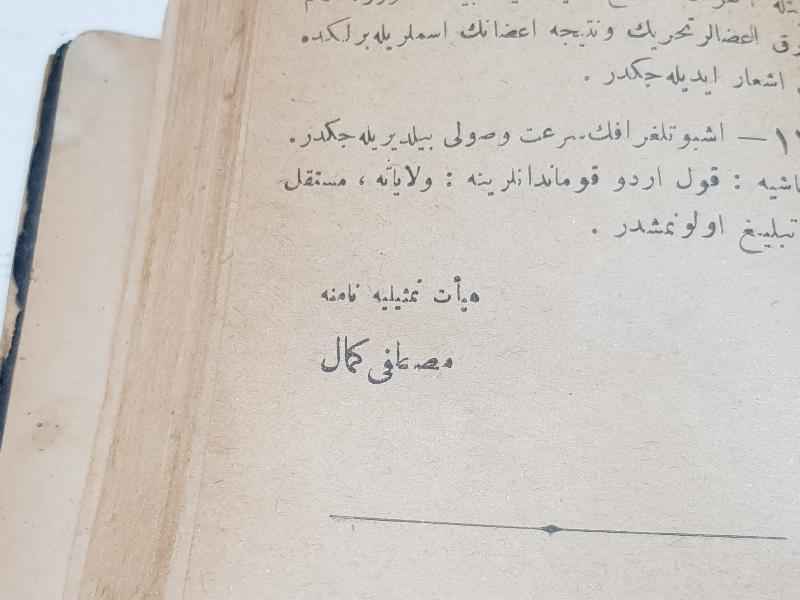 اعضالر تحريك ونتيجه اعضانك اسملريله برلكده
اشعار ايديله جكدر .
— اشبو تلغرافك سرعت وصولى بيلديريله جكدر .
: قول اردو قوماندانلرينه : ولاياته ، مستقل
تبليغ اولونمشدر .
هيأت تمثيليه نامنه
مصطفى كمال